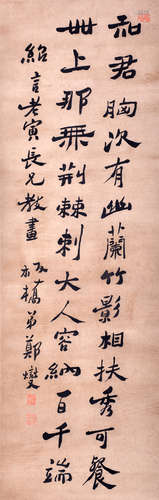 知君胸次有幽蘭竹影相扶秀可餐
世上那無荊棘刺大人容納百千端
紹言老寅長兄教畫
板橋弟鄭燮